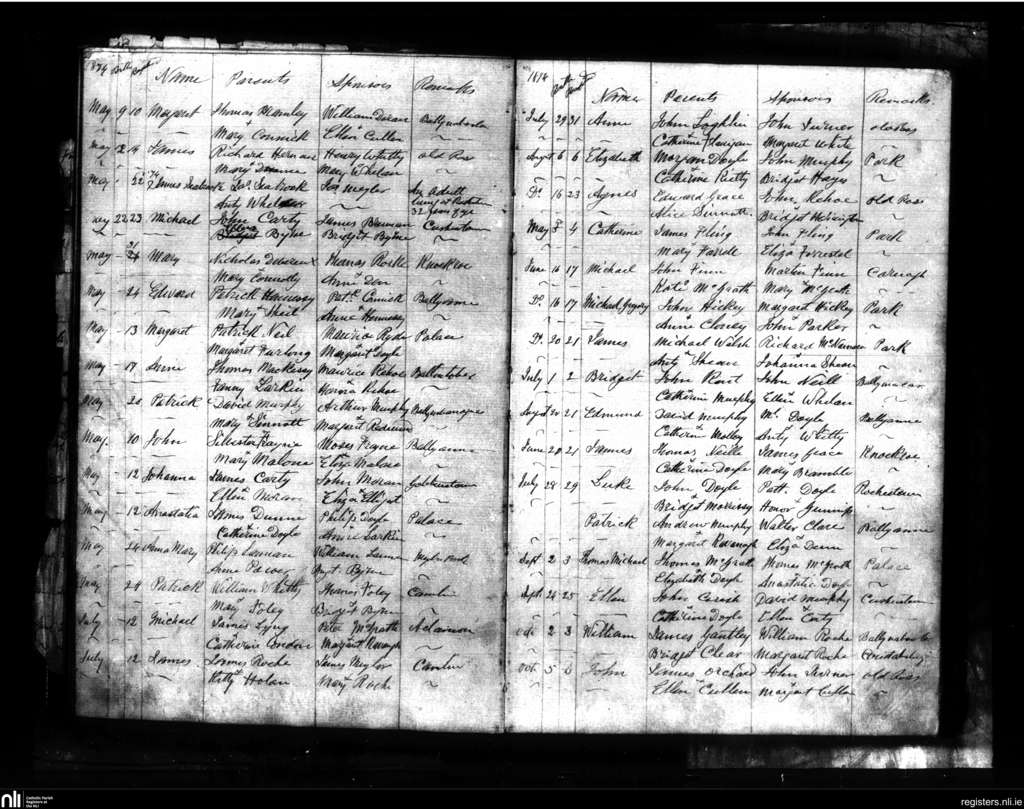 1874 Birth Bapt Name Parents Sponsors Remarks
May 9 10 Margaret Thomas Hanley William Doran Ballynabola
Mary Connick Ellen Cullen ~
May 2 4 James Richard Hernan Henry Whitty old Ross
Mary Dunne Mary Whelan ~
May 22 James Seabrook Jas Seabrook Jas Meyler An Adult
Anty Whelan ~ 32 years of age
May 22 23 Michael John Carty James Brennan Cushenstown
Bridget Byrne Bridget Byrne ~
May - 24 Mary Nicholas Devereux Thomas Roche Knockroe
Mary Connolly Anne Den ~
May - 24 Edward Patrick Hennessy Patk. Connick Ballyanne
Mary Sheil Anne Hennessy ~
May - 13 Margaret Patrick Neil Maurice Ryan Palace
Margaret Furlong Margaret Doyle ~
May - 17 Anne Thomas Mackessy Maurice Kehoe
Fanny Larkin Hanna Kehoe ~
May - 25 Patrick David Murphy Arthur Murphy
Mary Sinnott Margaret Redmond ~
May - 10 John Silvester Frayne Moses Frayne Ballyanne
Mary Malone Eliza Malone ~
May - 12 Johanna James Carty John Moran
Ellen Moran ~
May - 12 Anastatia James Dunne Philip Doyle Palace
Catherine Doyle Anne Larkin ~
May - 24 Anna Mary Philip Lennan William Lennan
Anne Power Brgt. Byrne ~
May - 24 Patrick William Whitty Thomas Foley Camlin
Mary Foley Bridget Byrne ~
July - 12 Michael James Lyng Peter McGrath
Catherine Condon Margaret Kavanagh ~
July - 12 James James Roche James Meyler Camlin
Kitty Holan Mary Roche ~
1874 Birth Bapt Names Parents Sponsors Remarks
July 29 31 Anne John Loghlin John Turner old Ross
Catherine Flanagan Margaret White ~
Augst 6 6 Elizabeth Morgan Doyle John Murphy Park
Catherine Reitty Bridget Hayes ~
Do. 16 23 Agnes Edward Grace John Kehoe old Ross
Alice Sinnott Bridget Hevington ~
May 3 4 Catherine James Fling John Fling Park
Mary Farde Eliza Forrestel ~
June 16 17 Michael John Finn Martin Finn Carnagh
Kate McGrath Mary McGrath ~
Do. 16 17 Michael Gregory John Hickey Margaret Hickey Park
Anne Cloney John Parker ~
Do. 20 21 James Michael Walsh Richard McNamara Park
Anty Shean Johanna Shean ~
July 1 2 Bridget John Knot John Neill
Catherine Murphy Ellen Whelan ~
Augst 20 21 Edmund David Murphy Mr. Doyle Ballyanne
Catherine Molloy Anty Whitty ~
June 20 21 James Thomas Neille James Grace Knockroe
Catherine Doyle Mary Bramble ~
July 28 29 Luke John Doyle Patt. Doyle Rochestown
Bridget Morrissy Honor ~
Patrick Andrew Murphy Walter Clare Ballyanne
Margaret Kavanagh Eliza Dunn ~
Sept 2 3 Thomas Michael Thomas McGrath Thomas McGrath Palace
Elizabeth Doyle Anastatia Doyle ~
Sept 24 25 Ellen John David Murphy Cushenstown
Catherine Doyle Ellen Carty ~
Oct 2 3 William James Gantley William Roche Ballynabola
Bridget Clear Margaret Roche Constabulary
Oct 5 6 John James Orchard John Turner old Ross
Ellen Cullen Margaret Cullen ~
nli Catholic Parish Registers at the NLI
registers.nli.ie